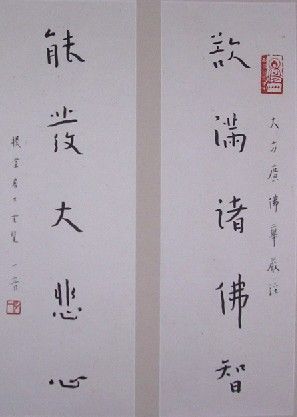 大方廣佛華嚴經
欲滿諸佛智
能發大悲心
居士 一音